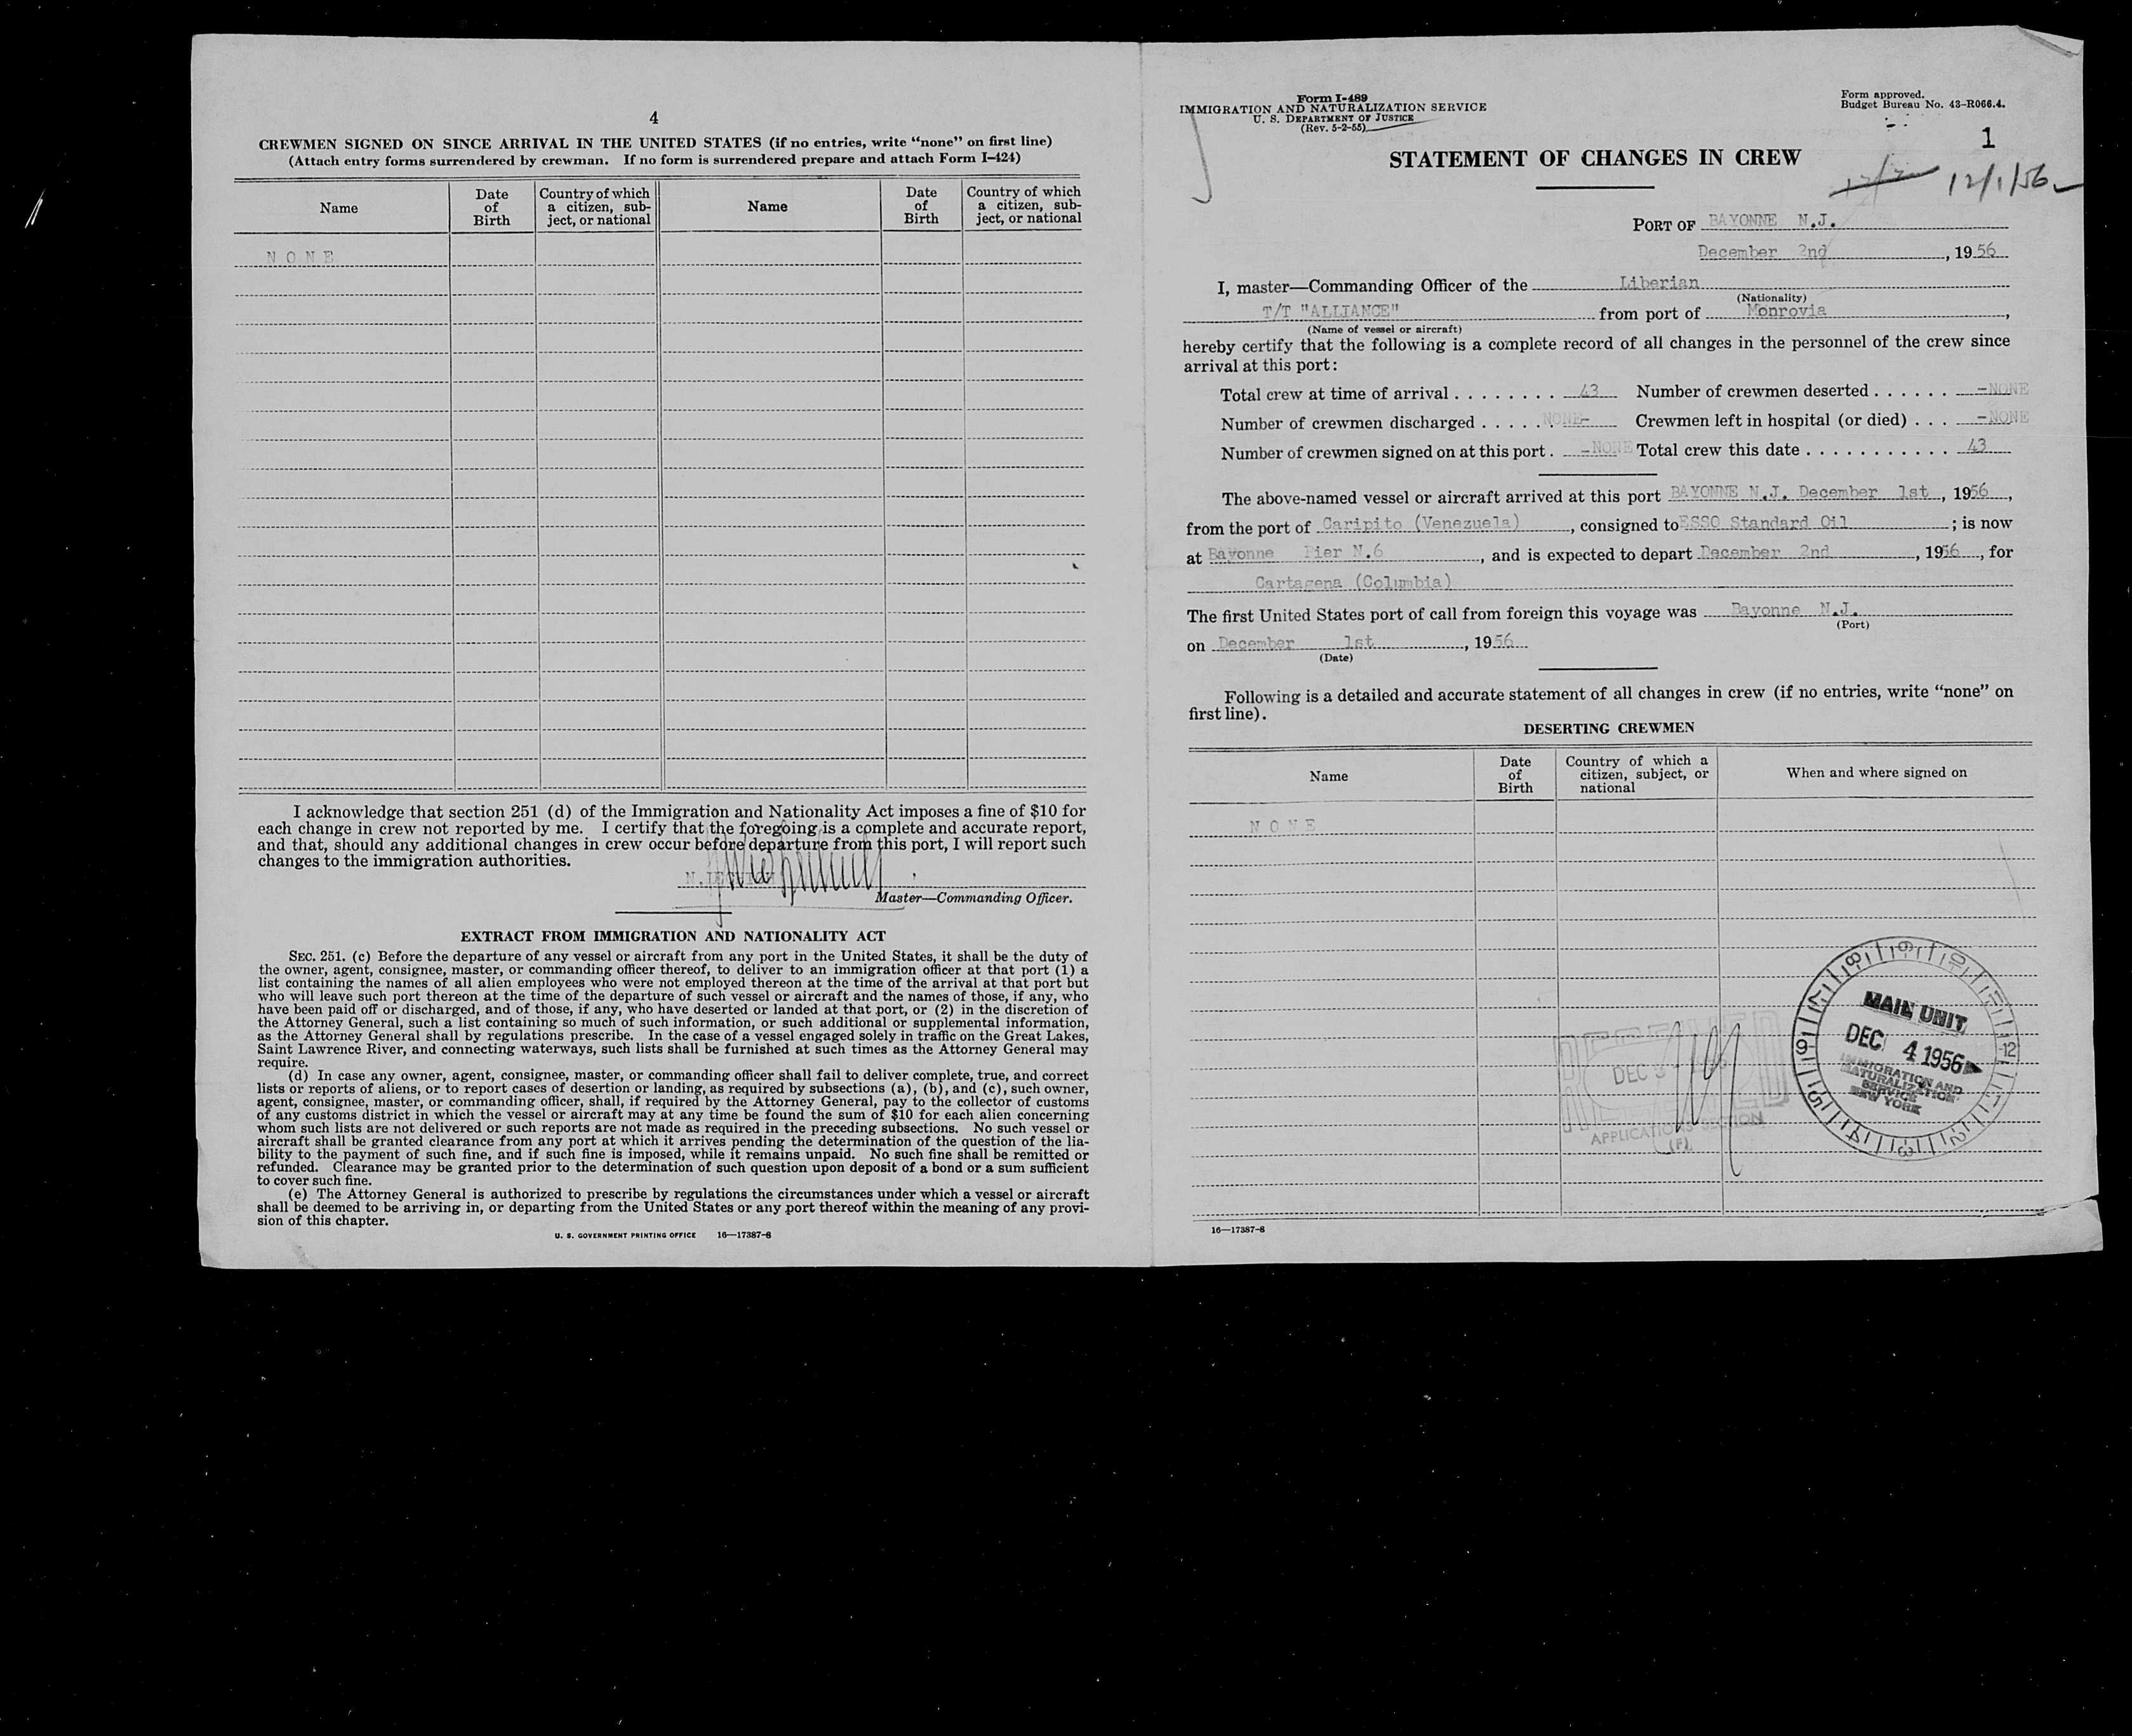 4
CREWMEN SIGNED ON SINCE ARRIVAL IN THE UNITED STATES (if no entries, write “none” on first line)
(Attach entry forms surrendered by crewman. If no form is surrendered prepare and attach Form I–424)
Name Date of Birth Country of which a citizen, sub-ject, or national Name Date of Birth Country of which a citizen, sub-ject, or national
N O N E
I acknowledge that section 251 (d) of the Immigration and Nationality Act imposes a fine of $10 for
each change in crew not reported by me. I certify that the foregoing is a complete and accurate report,
and that, should any additional changes in crew occur before departure from this port, I will report such
changes to the immigration authorities.
Master—Commanding Officer.
EXTRACT FROM IMMIGRATION AND NATIONALITY ACT
SEC. 251. (c) Before the departure of any vessel or aircraft from any port in the United States, it shall be the duty of
the owner, agent, consignee, master, or commanding officer thereof, to deliver to an immigration officer at that port (1) a
list containing the names of all alien employees who were not employed thereon at the time of the arrival at that port but
who will leave such port thereon at the time of the departure of such vessel or aircraft and the names of those, if any, who
have been paid off or discharged, and of those, if any, who have deserted or landed at that port, or (2) in the discretion of
the Attorney General, such a list containing so much of such information, or such additional or supplemental information,
as the Attorney General shall by regulations prescribe. In the case of a vessel engaged solely in traffic on the Great Lakes,
Saint Lawrence River, and connecting waterways, such lists shall be furnished at such times as the Attorney General may
require.
(d) In case any owner, agent, consignee, master, or commanding officer shall fail to deliver complete, true, and correct
lists or reports of aliens, or to report cases of desertion or landing, as required by subsections (a), (b), and (c), such owner,
agent, consignee, master, or commanding officer, shall, if required by the Attorney General, pay to the collector of customs
of any customs district in which the vessel or aircraft may at any time be found the sum of $10 for each alien concerning
whom such lists are not delivered or such reports are not made as required in the preceding subsections. No such vessel or
aircraft shall be granted clearance from any port at which it arrives pending the determination of the question of the lia-
bility to the payment of such fine, and if such fine is imposed, while it remains unpaid. No such fine shall be remitted or
refunded. Clearance may be granted prior to the determination of such question upon deposit of a bond or a sum sufficient
to cover such fine.
(e) The Attorney General is authorized to prescribe by regulations the circumstances under which a vessel or aircraft
shall be deemed to be arriving in, or departing from the United States or any port thereof within the meaning of any provi-
sion of this chapter.
U. S. GOVERNMENT PRINTING OFFICE 16—17387-8
Form I-489
IMMIGRATION AND NATURALIZATION SERVICE
U. S. DEPARTMENT OF JUSTICE
(Rev. 5-2-55)
Form approved.
Budget Bureau No. 43-R066.4.
1
STATEMENT OF CHANGES IN CREW
12/1/56
PORT OF BAYONNE N.J.
December 2nd, 1956
I, master—Commanding Officer of the Liberian
(Nationality)
T/T "ALLIANCE" from port of Monrovia,
(Name of vessel or aircraft)
hereby certify that the following is a complete record of all changes in the personnel of the crew since
arrival at this port:
Total crew at time of arrival . . . . . . . . 43 Number of crewmen deserted . . . . . . -NONE
Number of crewmen discharged . . . . . . NONE- Crewmen left in hospital (or died) . . . -NONE
Number of crewmen signed on at this port . -NONE Total crew this date . . . . . . . . . . . 43
The above-named vessel or aircraft arrived at this port BAYONNE N.J. December 1st, 1956,
from the port of Caripito (Venezuela), consigned to ESSO Standard Oil; is now
at Bayonne Pier N.6, and is expected to depart December 2nd, 1956, for
Cartagena (Columbia)
The first United States port of call from foreign this voyage was Bayonne N.J.
(Port)
on December 1st, 1956
(Date)
Following is a detailed and accurate statement of all changes in crew (if no entries, write “none” on
first line).
DESERTING CREWMEN
Name Date of Birth Country of which a citizen, subject, or national When and where signed on
N O N E
RECEIVED
DEC 3
APPLICATIONS SECTION
(F)
MAIN UNIT
DEC 4 1956
IMMIGRATION AND
NATURALIZATION
SERVICE
NEW YORK
16—17387-8